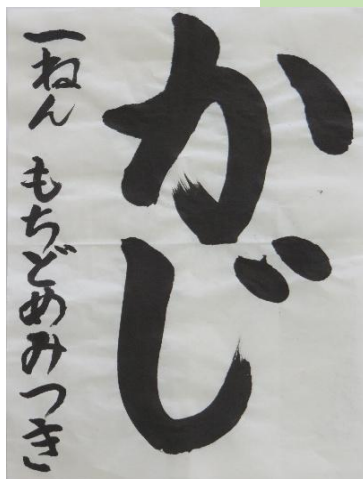 かじ
一ねん もちどめみつき